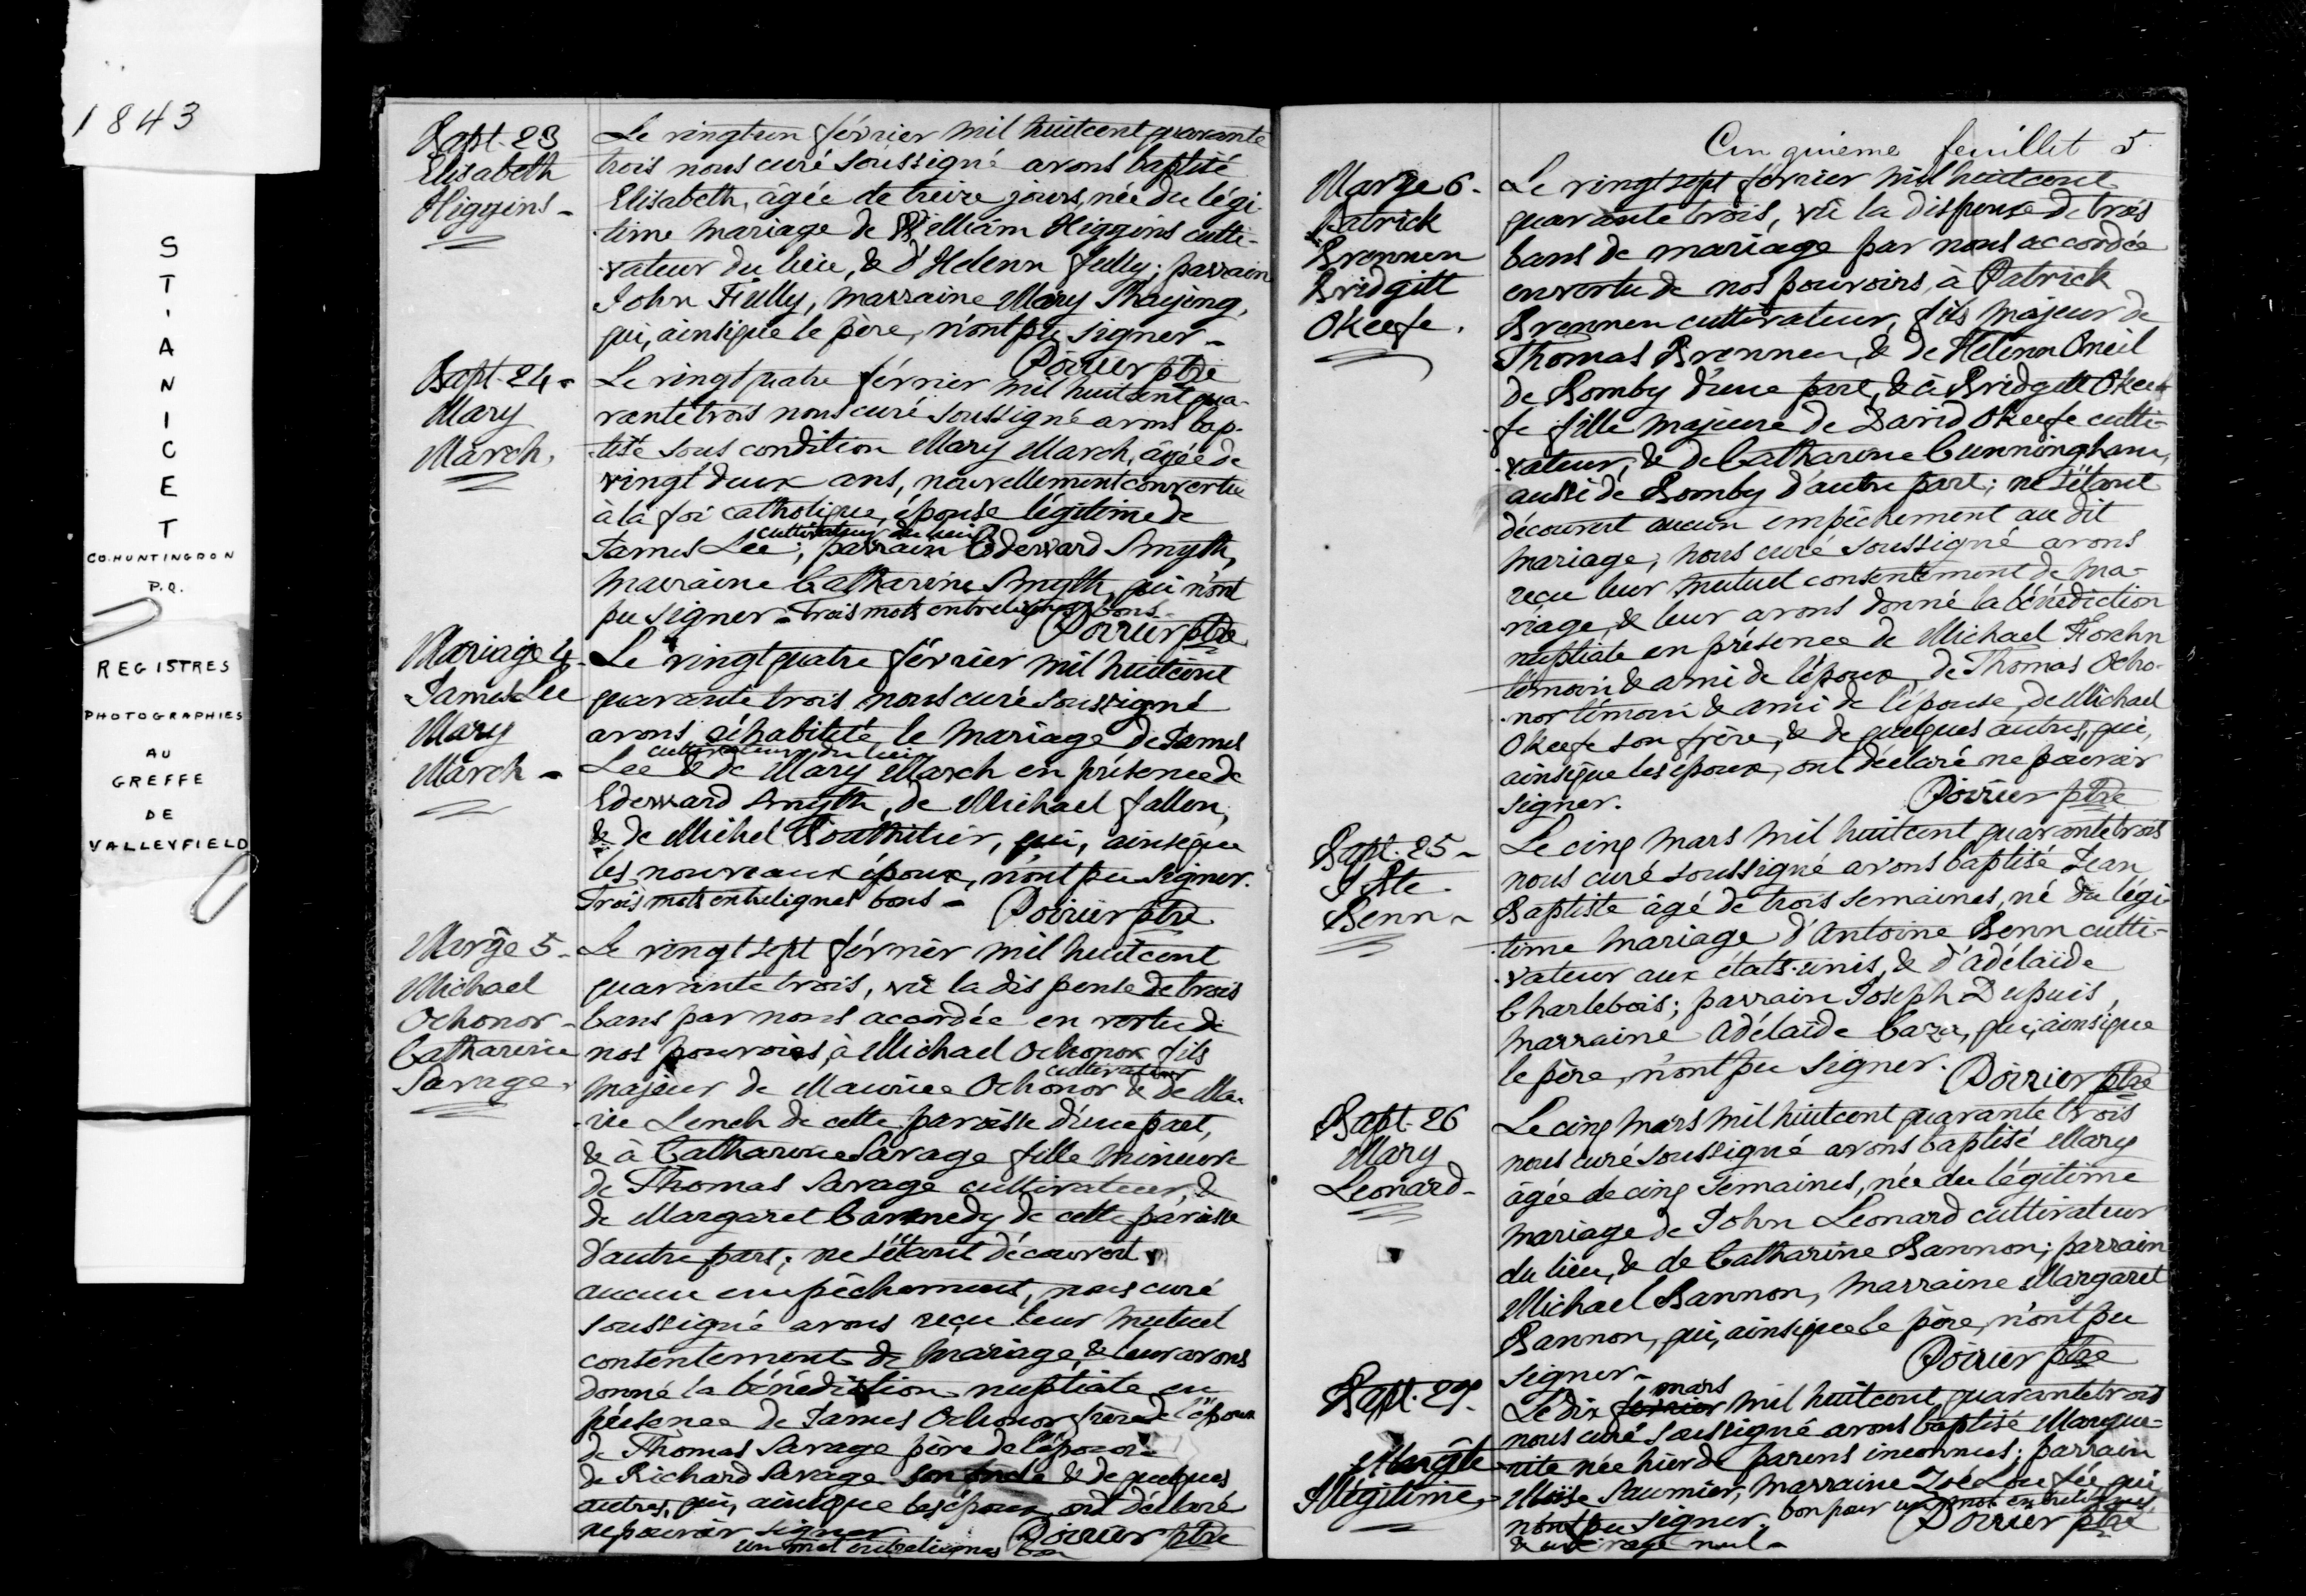 1843
S
T
'
A
N
I
C
E
T
CO. HUNTINGDON
P.Q.
REGISTRES
PHOTOGRAPHIES
AU
GREFFE
DE
VALLEYFIELD
Bapt. 23
Elisabeth
Higgins -
Le vingt un février mil huit cent quarante
trois nous curé soussigné avons baptisé
Elisabeth, âgée de treize jours, née du légi-
time mariage de William Higgins culti-
vateur du lieu, & d'Helenn fully; parrain
John Fully, marraine Mary
qui, ainsi que le père, n'ont pu signer -
Poirier ptre
Bapt. 24 -
Mary
March.
Le vingt quatre février mil huit cent qua-
rante trois nous curé soussigné avons bap-
tisé sous condition Mary March, âgée de
vingt deux ans, nouvellement convertie
à la foi catholique, épouse légitime de
cultivateur du lieu
James Lee; parrain Ederward Smyth,
marraine Catharine Smyth, qui n'ont
pu signer - trois mots entrelignes bons -
Poirier ptre
Mariage 4.
James Lee
Mary
March -
Le vingt quatre février mil huit cent
quarante trois nous curé soussigné
avons réhabilité le mariage de James
cultivateur du lieu
Lee & de Mary March en présence de
Ederward Smyth, de Michael fallon,
& de Michel qui, ainsi que
les nouveaux époux, n'ont pu signer.
Trois mots entrelignes bons - Poirier ptre
Marge 5 -
Michael
Ochonor -
Catharine
Savage.
Le vingt sept février mil huit cent
quarante trois, vû la dispense de trois
bans par nous accordée en vertu de
nos pouvoirs, à Michael Ochonor fils
cultivateur
majeur de Maurice Ochonor & de Ma-
rie Lench de cette paroisse d'une part,
& à Catharine Savage fille mineure
de Thomas Savage cultivateur, &
de Margaret Cannedy de cette paroisse
d'autre part; ne s'étant découvert
aucun empêchement, nous curé
soussigné avons reçu leur mutuel
consentement de mariage, & leur avons
donné la bénédiction nuptiale en
présence de James Ochonor frère de l'époux
de Thomas Savage père de l'épouse
de Richard Savage son oncle & de quelques
autres, qui, ainsi que les époux, ont déclaré
ne pouvoir signer Poirier ptre
un mot entrelignes bon
Cinquième feuillet 5.
Marge 6 -
Patrick
Brennen
Bridgitt
OKeefe.
Le vingt sept février mil huit cent
quarante trois, vû la dispense de trois
bans de mariage par nous accordée
en vertu de nos pouvoirs, à Patrick
Brennen cultivateur, fils majeur de
Thomas Brennen, & de Helenn Oneil
de Bomby d'une part, & à Bridgitt OKee-
fe fille majeure de David OKeefe culti-
vateur, & de Catharine Cunningham,
aussi de Bomby d'autre part; ne s'étant
découvert aucun empêchement au dit
mariage, nous curé soussigné avons
reçu leur mutuel consentement de ma-
riage, & leur avons donné la bénédiction
nuptiale en présence de Michael
témoin & ami de l'époux, de Thomas Ocho-
nor témoin & ami de l'épouse, de Michael
OKeefe son frère, & de quelques autres, qui,
ainsi que les époux, ont déclaré ne pouvoir
signer. Poirier ptre
Bapt. 25 -
J. Bte.
Benn -
Le cinq mars mil huit cent quarante trois
nous curé soussigné avons baptisé Jean
Baptiste âgé de trois semaines, né du légi-
time mariage d'Antoine Benn culti-
vateur aux états-unis, & d'adélaïde
Charlebois; parrain Joseph Dupuis,
marraine adélaïde Caza, qui, ainsi que
le père, n'ont pu signer. Poirier ptre
Bapt. 26
Mary
Leonard -
Le cinq mars mil huit cent quarante trois
nous curé soussigné avons baptisé Mary
âgée de cinq semaines, née du légitime
mariage de John Leonard cultivateur
du lieu, & de Catharine Bannon; parrain
Michael Bannon, marraine Margaret
Bannon, qui, ainsi que le père, n'ont pu
signer - Poirier ptre
Bapt. 27.
Margte
Illégitime -
mars
Le dix février mil huit cent quarante trois
nous curé soussigné avons baptisé Margue-
rite née hier de parens inconnus; parrain
Moïse Saumier, marraine Zoé qui
n'ont pu signer. bon pour un mot entrelignes
Poirier ptre
& un rayé nul -